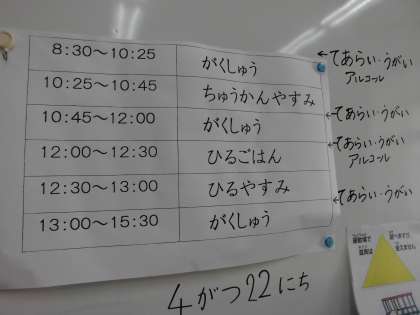 8:30～10:25 がくしゅう
←てあらい・うがい
アルコール
10:25～10:45 ちゅうかんやすみ
←てあらい・うがい
10:45～12:00 がくしゅう
←てあらい・うがい
アルコール
12:00～12:30 ひるごはん
12:30～13:00 ひるやすみ
←てあらい・うがい
13:00～15:30 がくしゅう
4がつ22にち